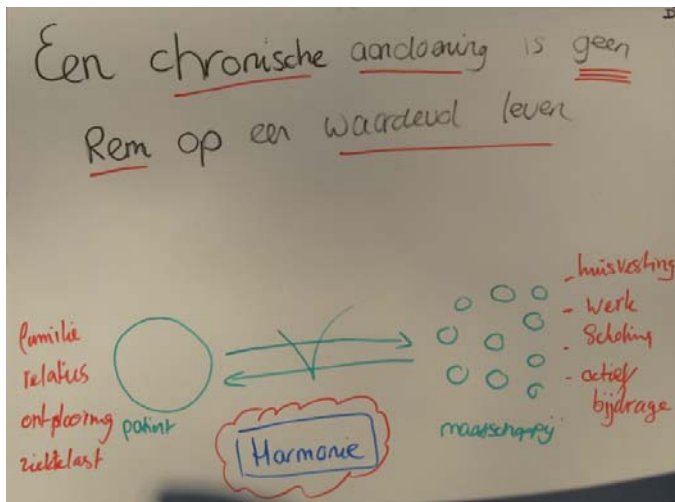 Een chronische aandoening is geen
Rem op een waardevol leven
familie
relaties
ontplooiing
ziektelast
patient
Harmonie
maatschappij
- huisvesting
- werk
- Scholing
- actief
bijdrage